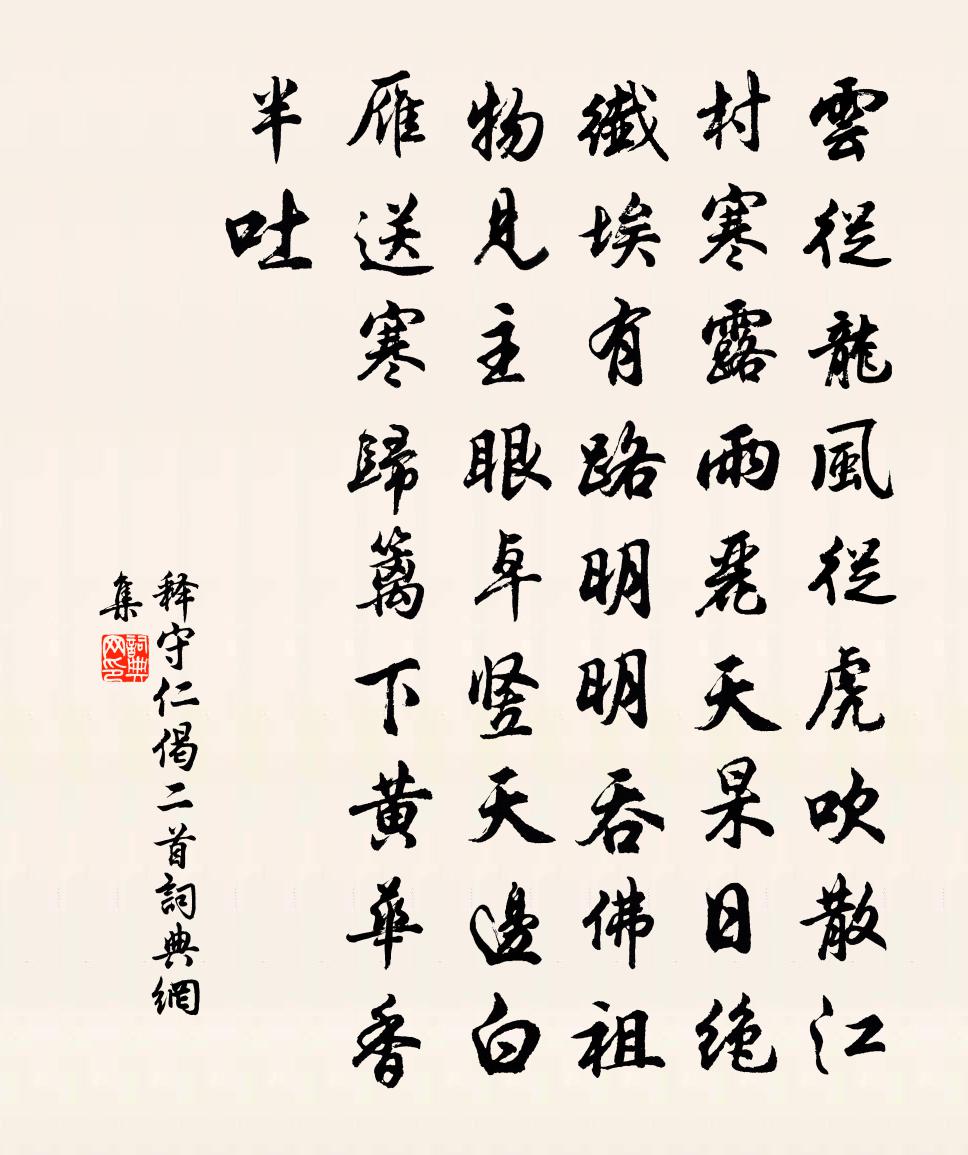 雲從龍風從虎吹散江
村寒露雨麗天杲日絶
纖埃有路明明吞佛祖
物見主眼卓竖天邊白
雁送寒歸篱下黄華香
半吐
释守仁偈二首詞典網
集
詞典網印